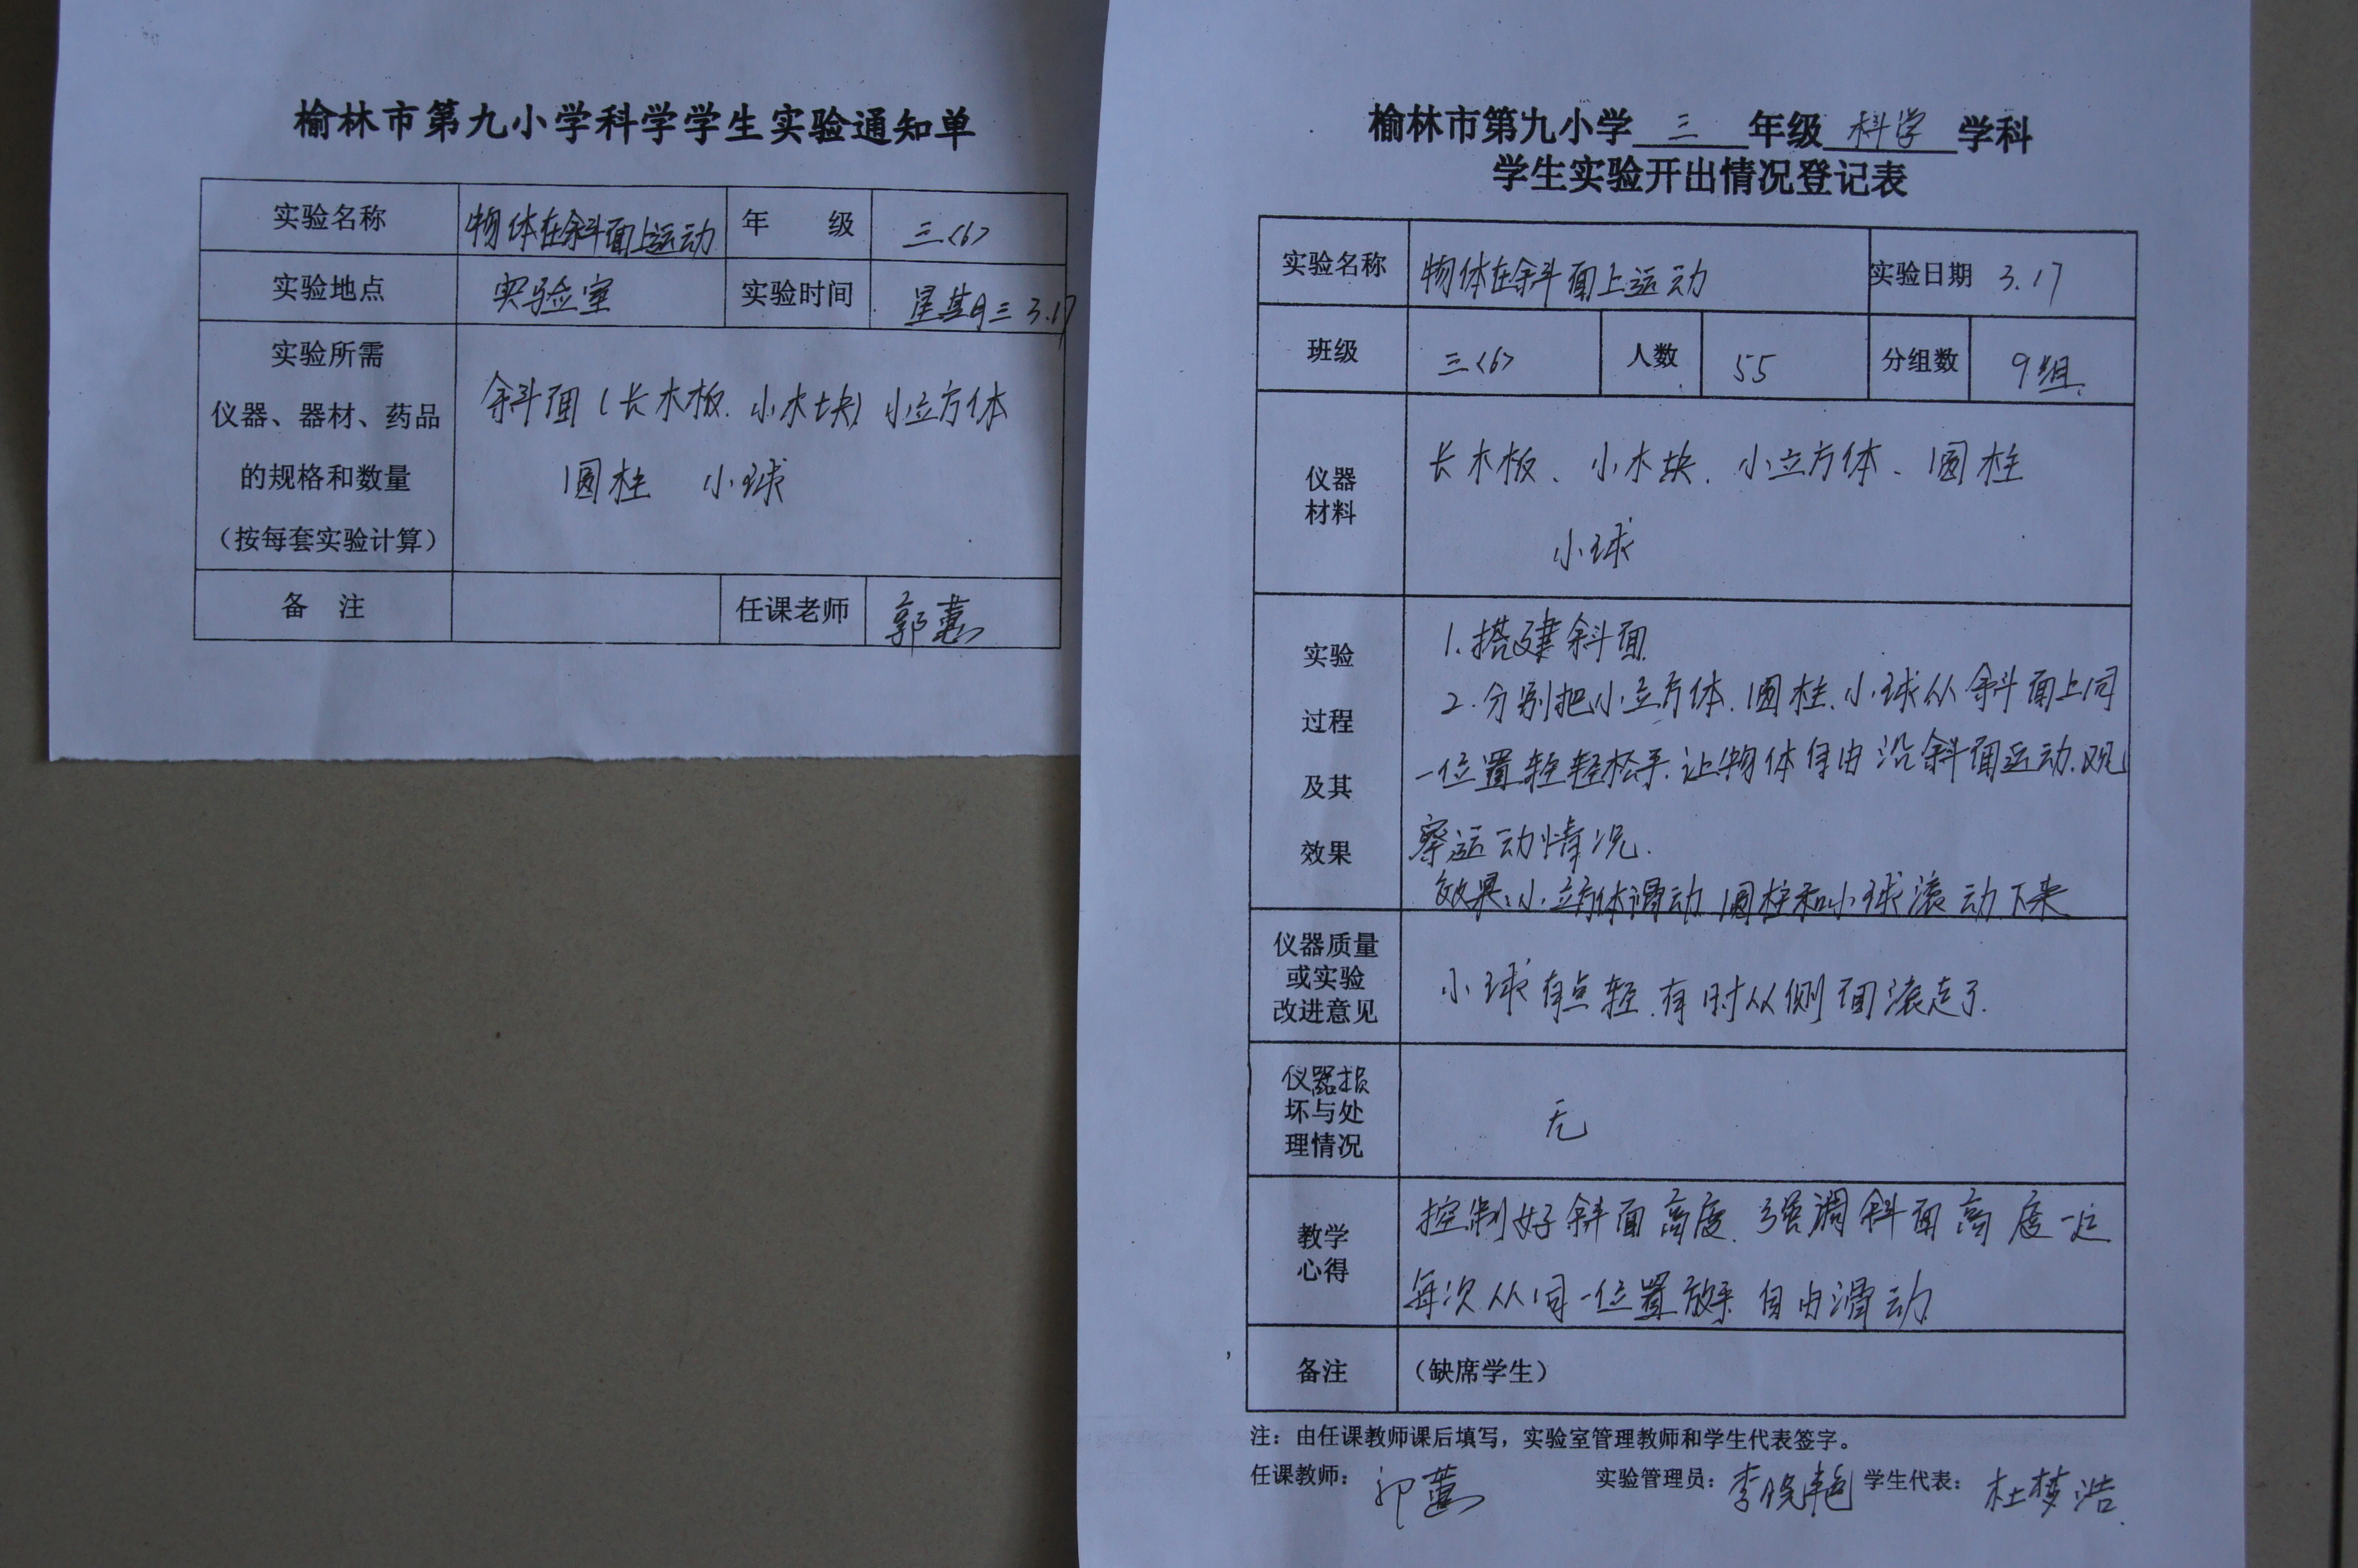 榆林市第九小学科学学生实验通知单
实验名称 物体在斜面上运动 年 级 三<6>
实验地点 实验室 实验时间 星期三 3.17
实验所需
仪器、器材、药品
的规格和数量
（按每套实验计算）
斜面(长木板、小木块) 小立方体
圆柱 小球
备 注 任课老师 郭蕙
榆林市第九小学 三 年级 科学 学科
学生实验开出情况登记表
实验名称 物体在斜面上运动 实验日期 3.17
班级 三<6> 人数 55 分组数 9组.
仪器
材料
长木板、小木块、小立方体、圆柱
小球
实验
过程
及其
效果
1.搭建斜面
2.分别把小立方体、圆柱、小球从斜面上同
一位置轻轻松手.让物体自由沿斜面运动.观
察运动情况.
效果:小立方体滑动 圆柱和小球滚动下来
仪器质量
或实验
改进意见
小球有点轻.有时从侧面滚走了.
仪器损
坏与处
理情况
无
教学
心得
控制好斜面高度.强调斜面高度一定
每次从同一位置放手 自由滑动
备注 （缺席学生）
注：由任课教师课后填写，实验室管理教师和学生代表签字。
任课教师： 郭蕙 实验管理员：李晓艳 学生代表： 杜梦浩